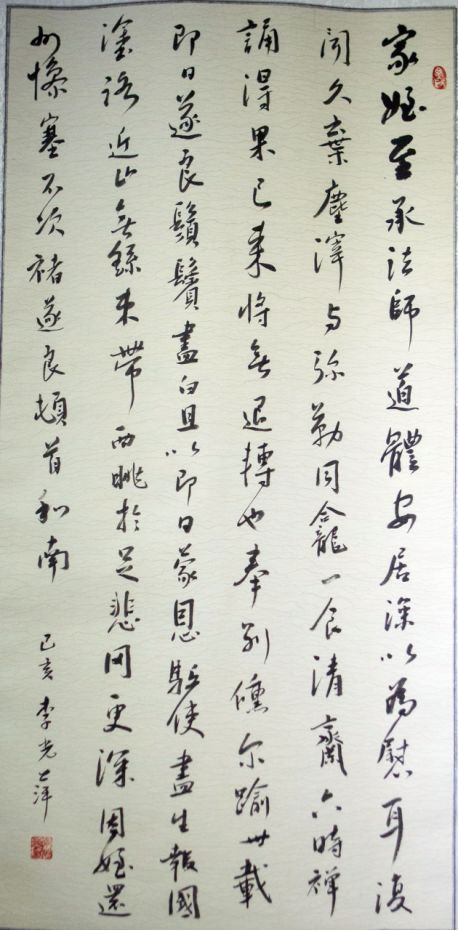 家姪至承法師道體安居深以為慰耳復
聞久棄塵滓与弥勒同龕一食清齋六時禅
誦得果已来將無退轉也奉别儵尔踰卅載
即日遂良鬚鬢盡白且以即日蒙恩驅使盡生報國
塗路近止無繇束帶西眺於悲罔更深因姪還
州慘塞不次褚遂良頓首和南
己亥 李光